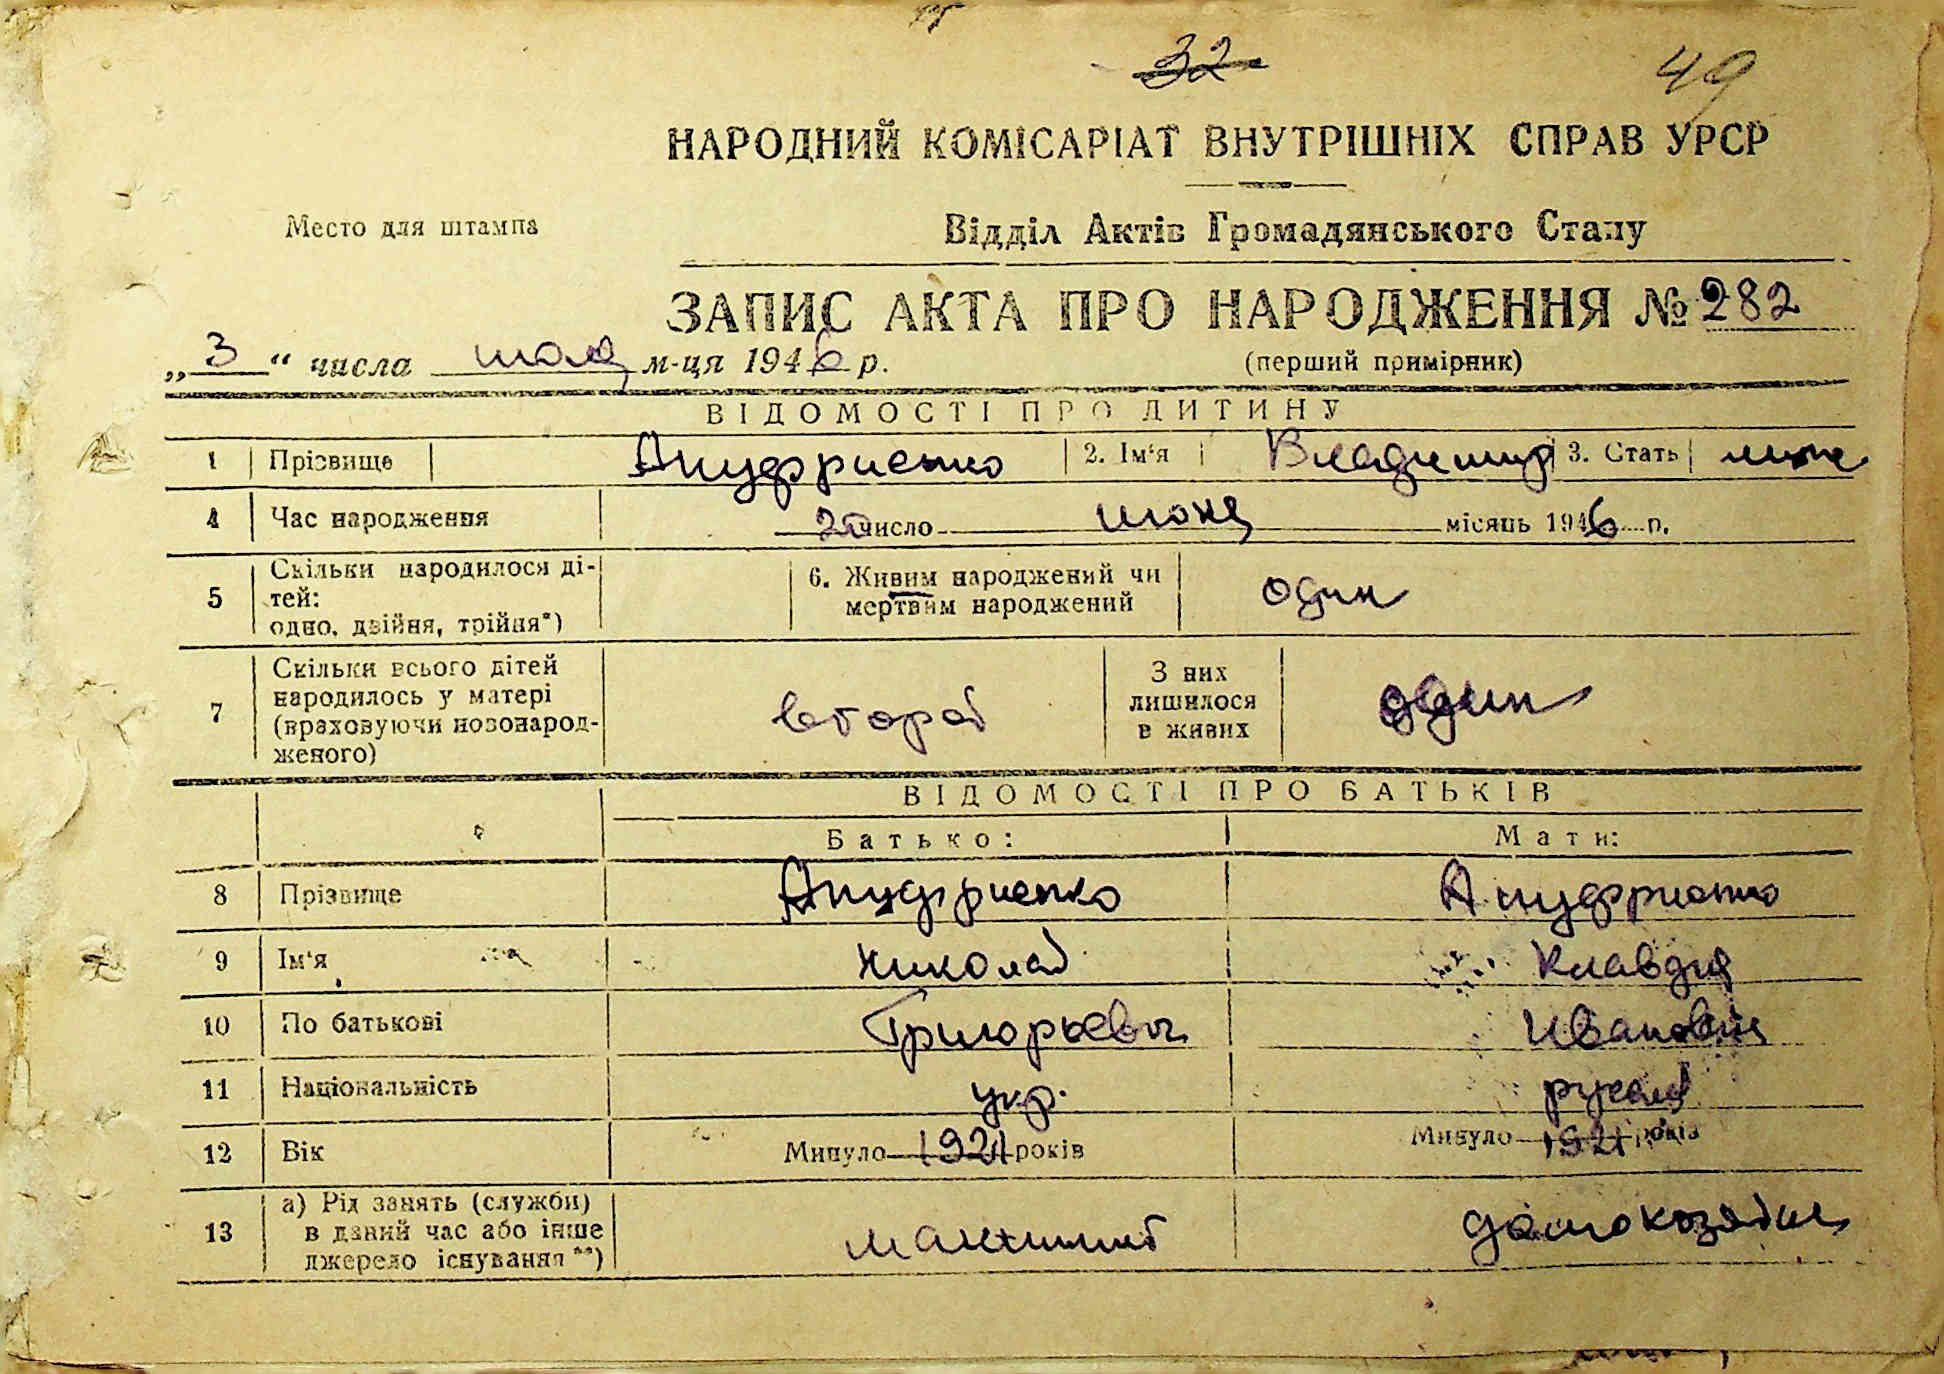 32
49
НАРОДНИЙ КОМІСАРІАТ ВНУТРІШНІХ СПРАВ УРСР
Место для штампа
Відділ Актів Громадянського Стану
ЗАПИС АКТА ПРО НАРОДЖЕННЯ № 282
„ 3 “ числа июля м-ця 1946 р.
(перший примірник)
ВІДОМОСТІ ПРО ДИТИНУ
1 Прізвище Ануфриенко 2. Ім'я Владимир 3. Стать муж
4 Час народження число июня місяць 1946 р.
5 Скільки народилося ді-
тей:
одно, двійня, трійня*)
6. Живим народжений чи
мертвим народжений
один
7 Скільки всього дітей
народилось у матері
(враховуючи новонарод-
женого)
второй
З них
лишилося
в живих
один
ВІДОМОСТІ ПРО БАТЬКІВ
Батько: Мати:
8 Прізвище Ануфриенко Ануфриенко
9 Ім'я Николай Клавдия
10 По батькові Григорьевич Ивановна
11 Національність укр. русская
12 Вік Минуло 1921 років Минуло 1921 років
13 а) Рід занять (служби)
в даний час або інше
джерело існування **)
машинист домохозяйка